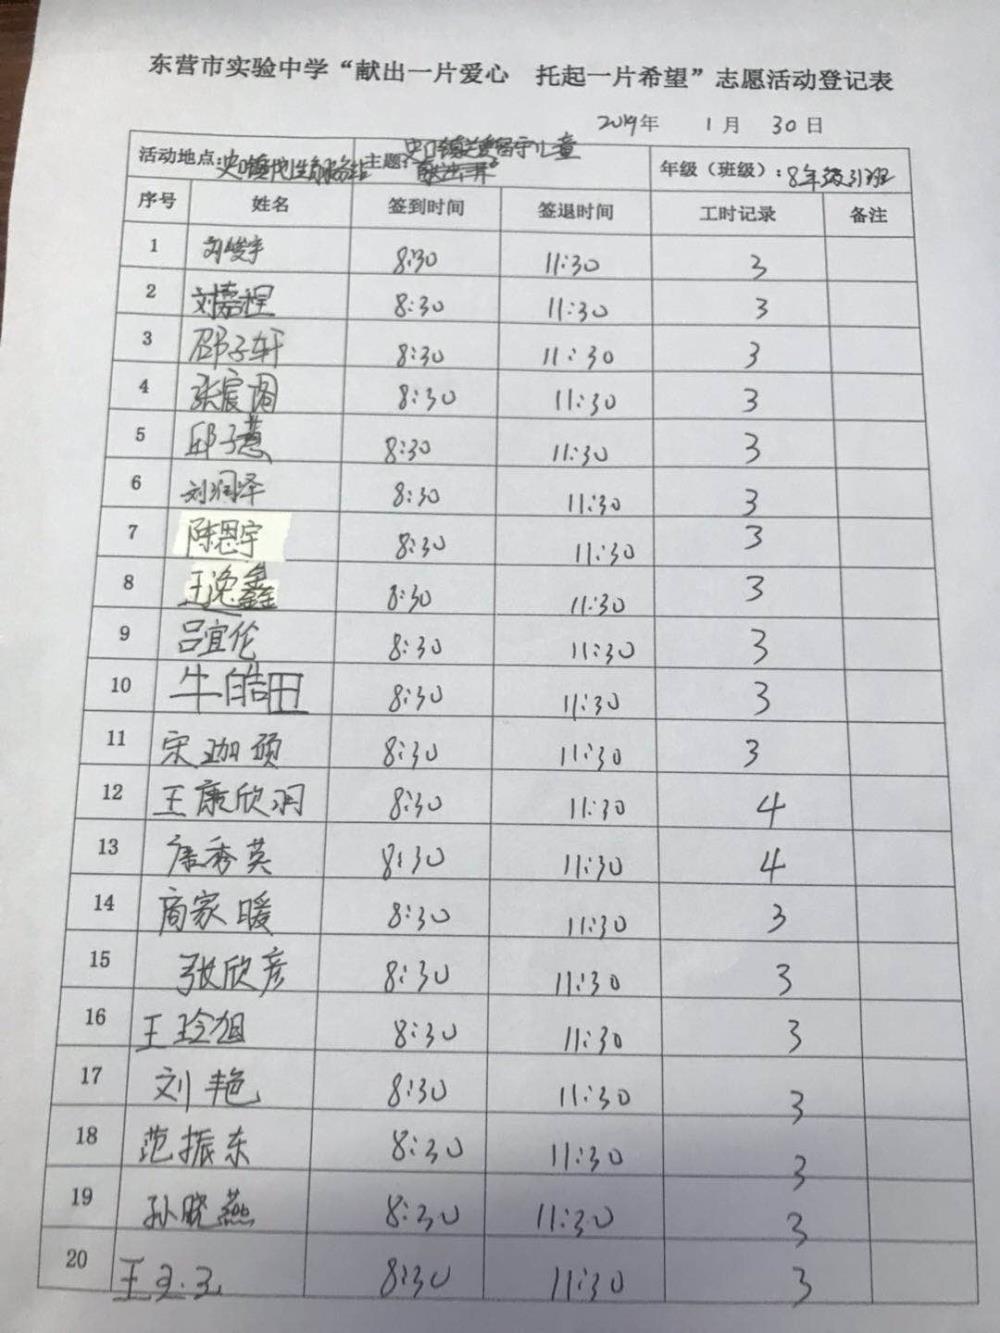 东营市实验中学“献出一片爱心 托起一片希望”志愿活动登记表
2019年 1月 30日
活动地点： 主题： 关爱留守儿童 年级（班级）：8年级31班
序号 姓名 签到时间 签退时间 工时记录 备注
1 刘峻宇 8:30 11:30 3
2 刘嘉程 8:30 11:30 3
3 邵子轩 8:30 11:30 3
4 张宸阁 8:30 11:30 3
5 邱子慧 8:30 11:30 3
6 刘润泽 8:30 11:30 3
7 陈恩宇 8:30 11:30 3
8 王逸鑫 8:30 11:30 3
9 吕宜伦 8:30 11:30 3
10 牛皓田 8:30 11:30 3
11 宋珈颀 8:30 11:30 3
12 王康欣润 8:30 11:30 4
13 唐秀英 8:30 11:30 4
14 商家暖 8:30 11:30 3
15 张欣彦 8:30 11:30 3
16 王玲旭 8:30 11:30 3
17 刘艳 8:30 11:30 3
18 范振东 8:30 11:30 3
19 孙晓燕 8:30 11:30 3
20 王 8:30 11:30 3